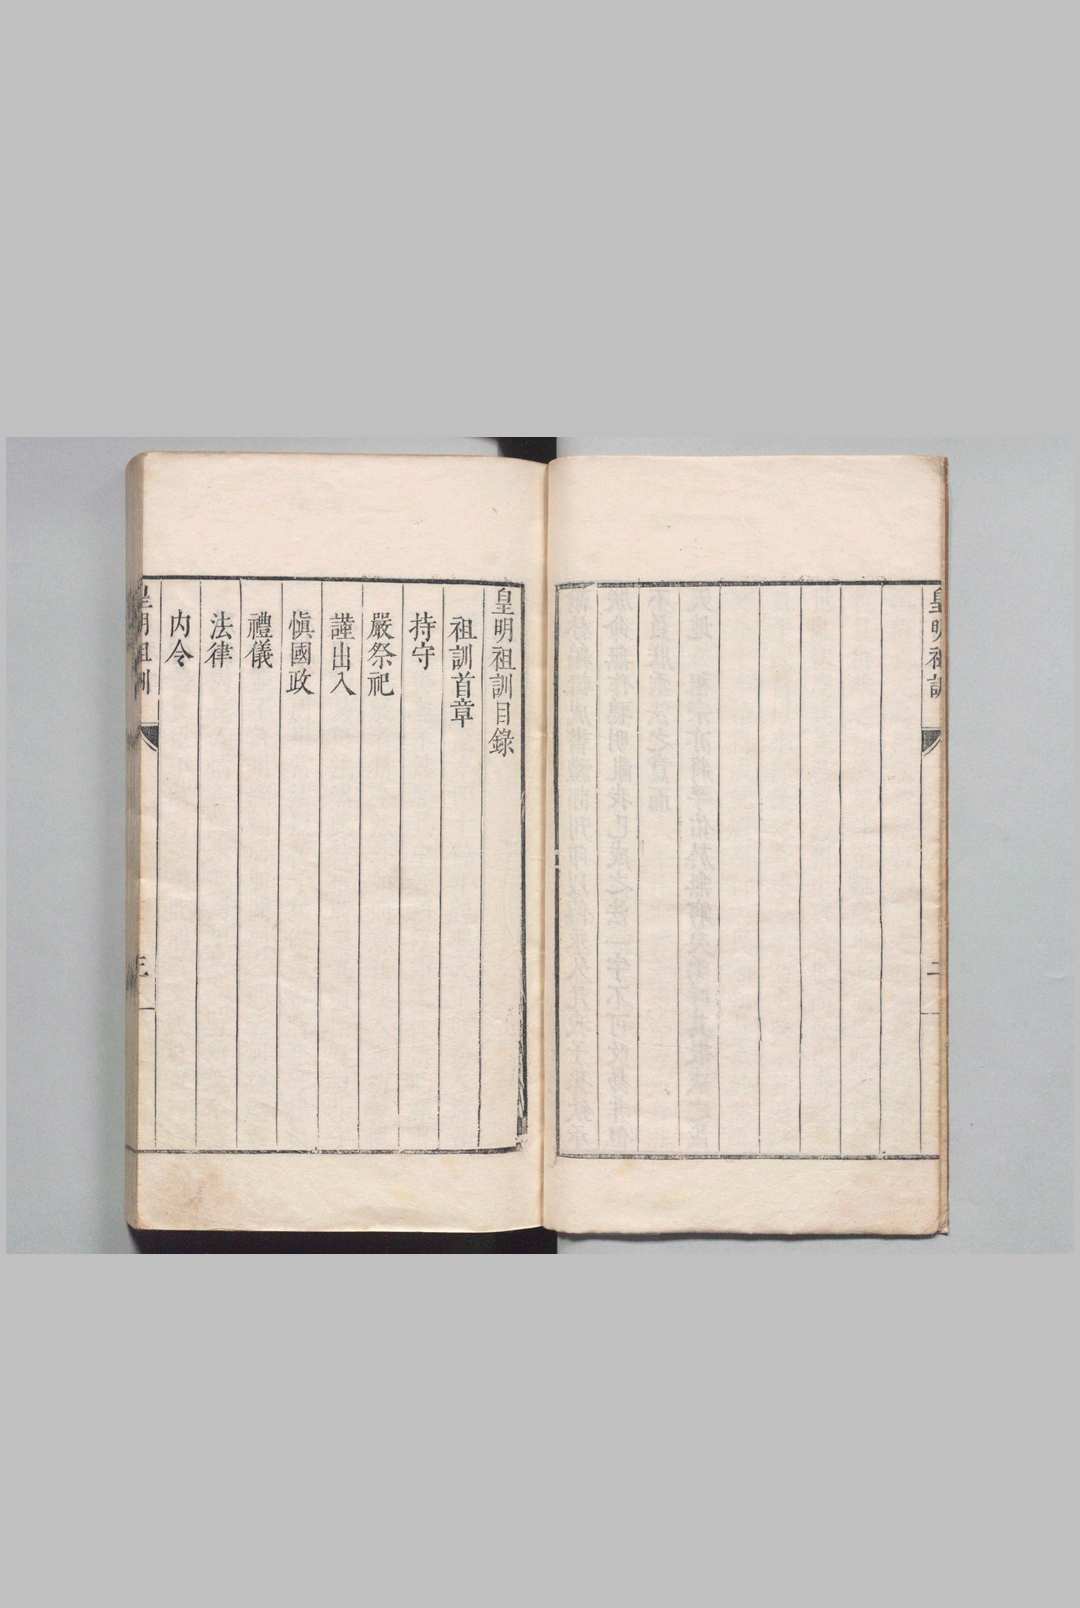 皇明祖訓
二
皇明祖訓目錄
祖訓首章
持守
嚴祭祀
謹出入
愼國政
禮儀
法律
内令
皇明祖訓
三